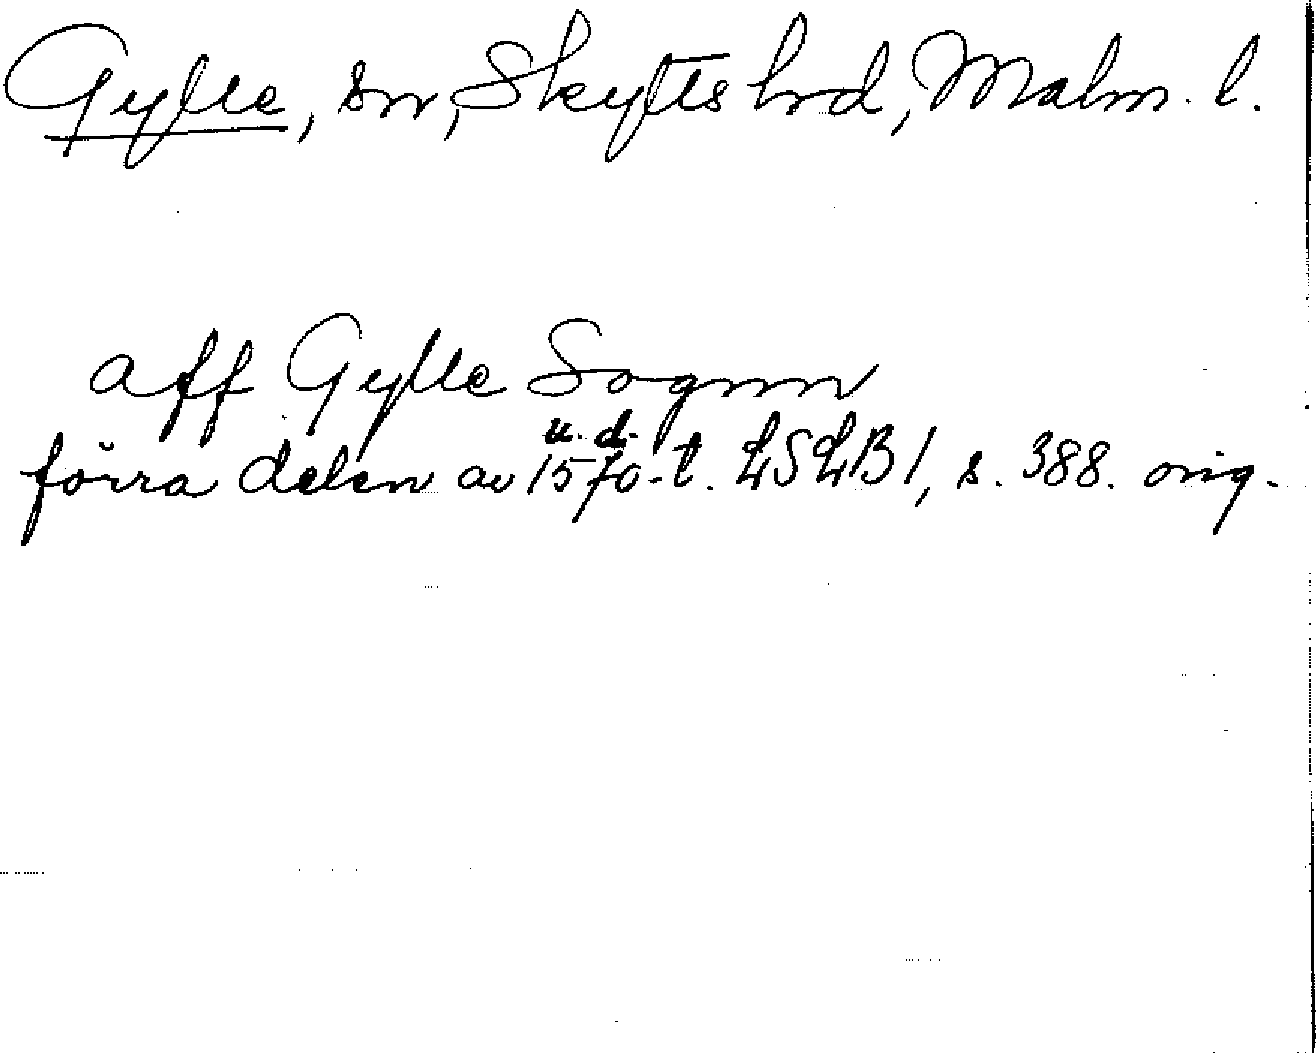 Gylle, sn, Skytts hrd, Malm. l.
aff Gylle Sognn
u. d.
förra delen av 1570-t. LSLB 1, s. 388. orig.